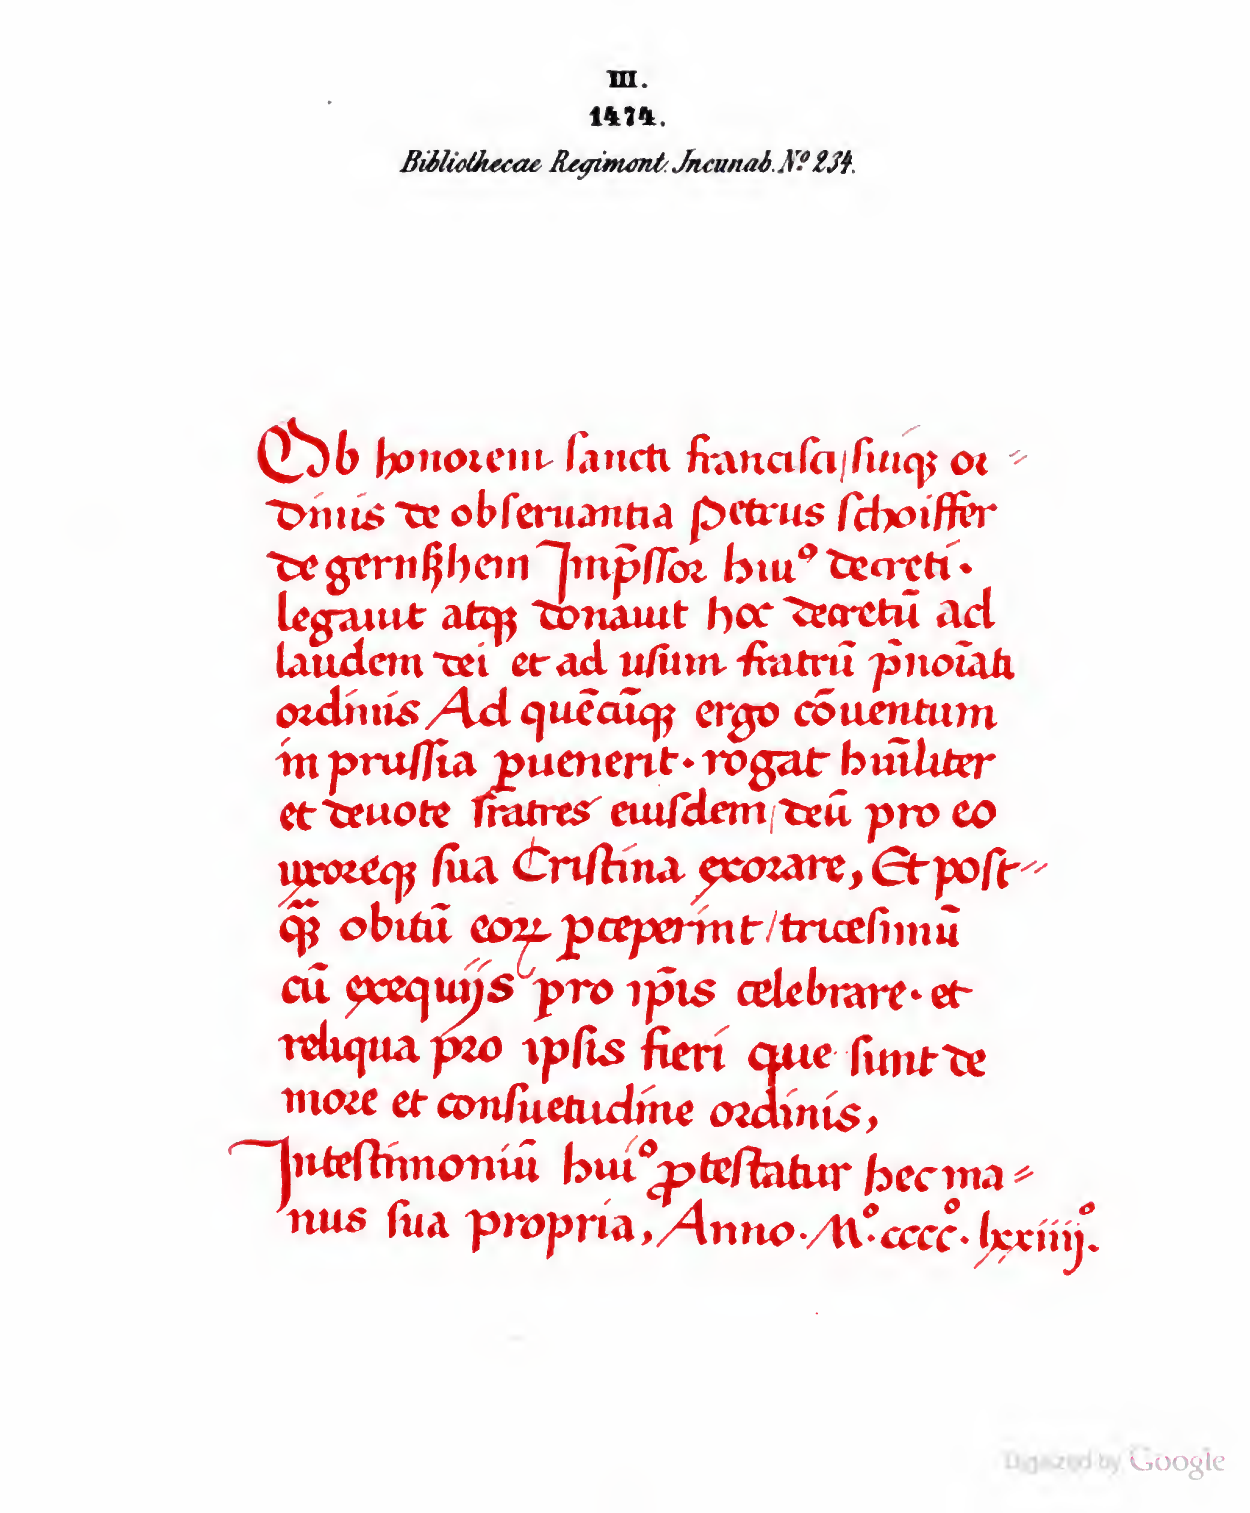 III.
1474.
Bibliothecae Regimont. Jncunab. Nº 234.
Ob honorem sancti francisci/ suiqꝫ or⸗
dinis de obseruantia Petrus schoiffer
de gernßhem Jmp̄ssor huiꝰ decreti·
legauit atqꝫ donauit hoc decretū ad
laudem dei et ad usum fratrū p̄noīati
ordinis Ad quēcūqꝫ ergo cōuentum
in prussia ꝑuenerit· rogat hūiliter
et deuote fratres eiusdem/ deū pro eo
uxoreqꝫ sua Cristina exorare, Et post⸗
qꝫ̄ obitū eoꝝ ꝑceperint/ tricesimū
cū exequijs pro ip̄is celebrare· et
reliqua pro ipsis fieri que sunt de
more et consuetudine ordinis,
Jntestimoniū huiꝰ ꝓtestatur hec ma⸗
nus sua propria, Anno· Mº· ccccº· lxxiiijº.
Digitized by Google